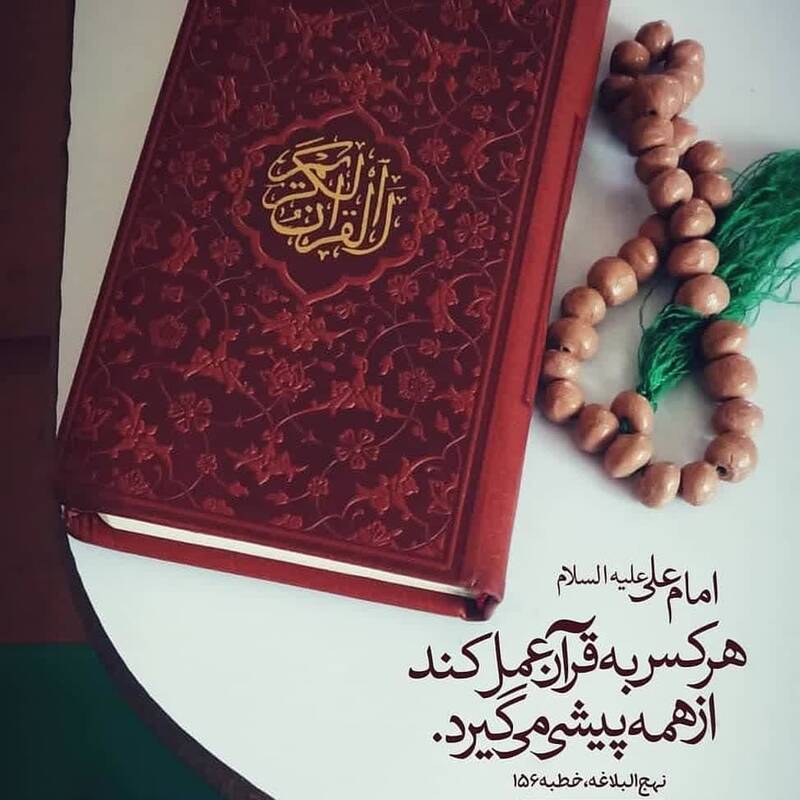 القرآن الکریم
امام علی علیه السلام
هرکس به قرآن عمل کند
از همه پیشی می‌گیرد.
نهج البلاغه، خطبه ۱۵۶